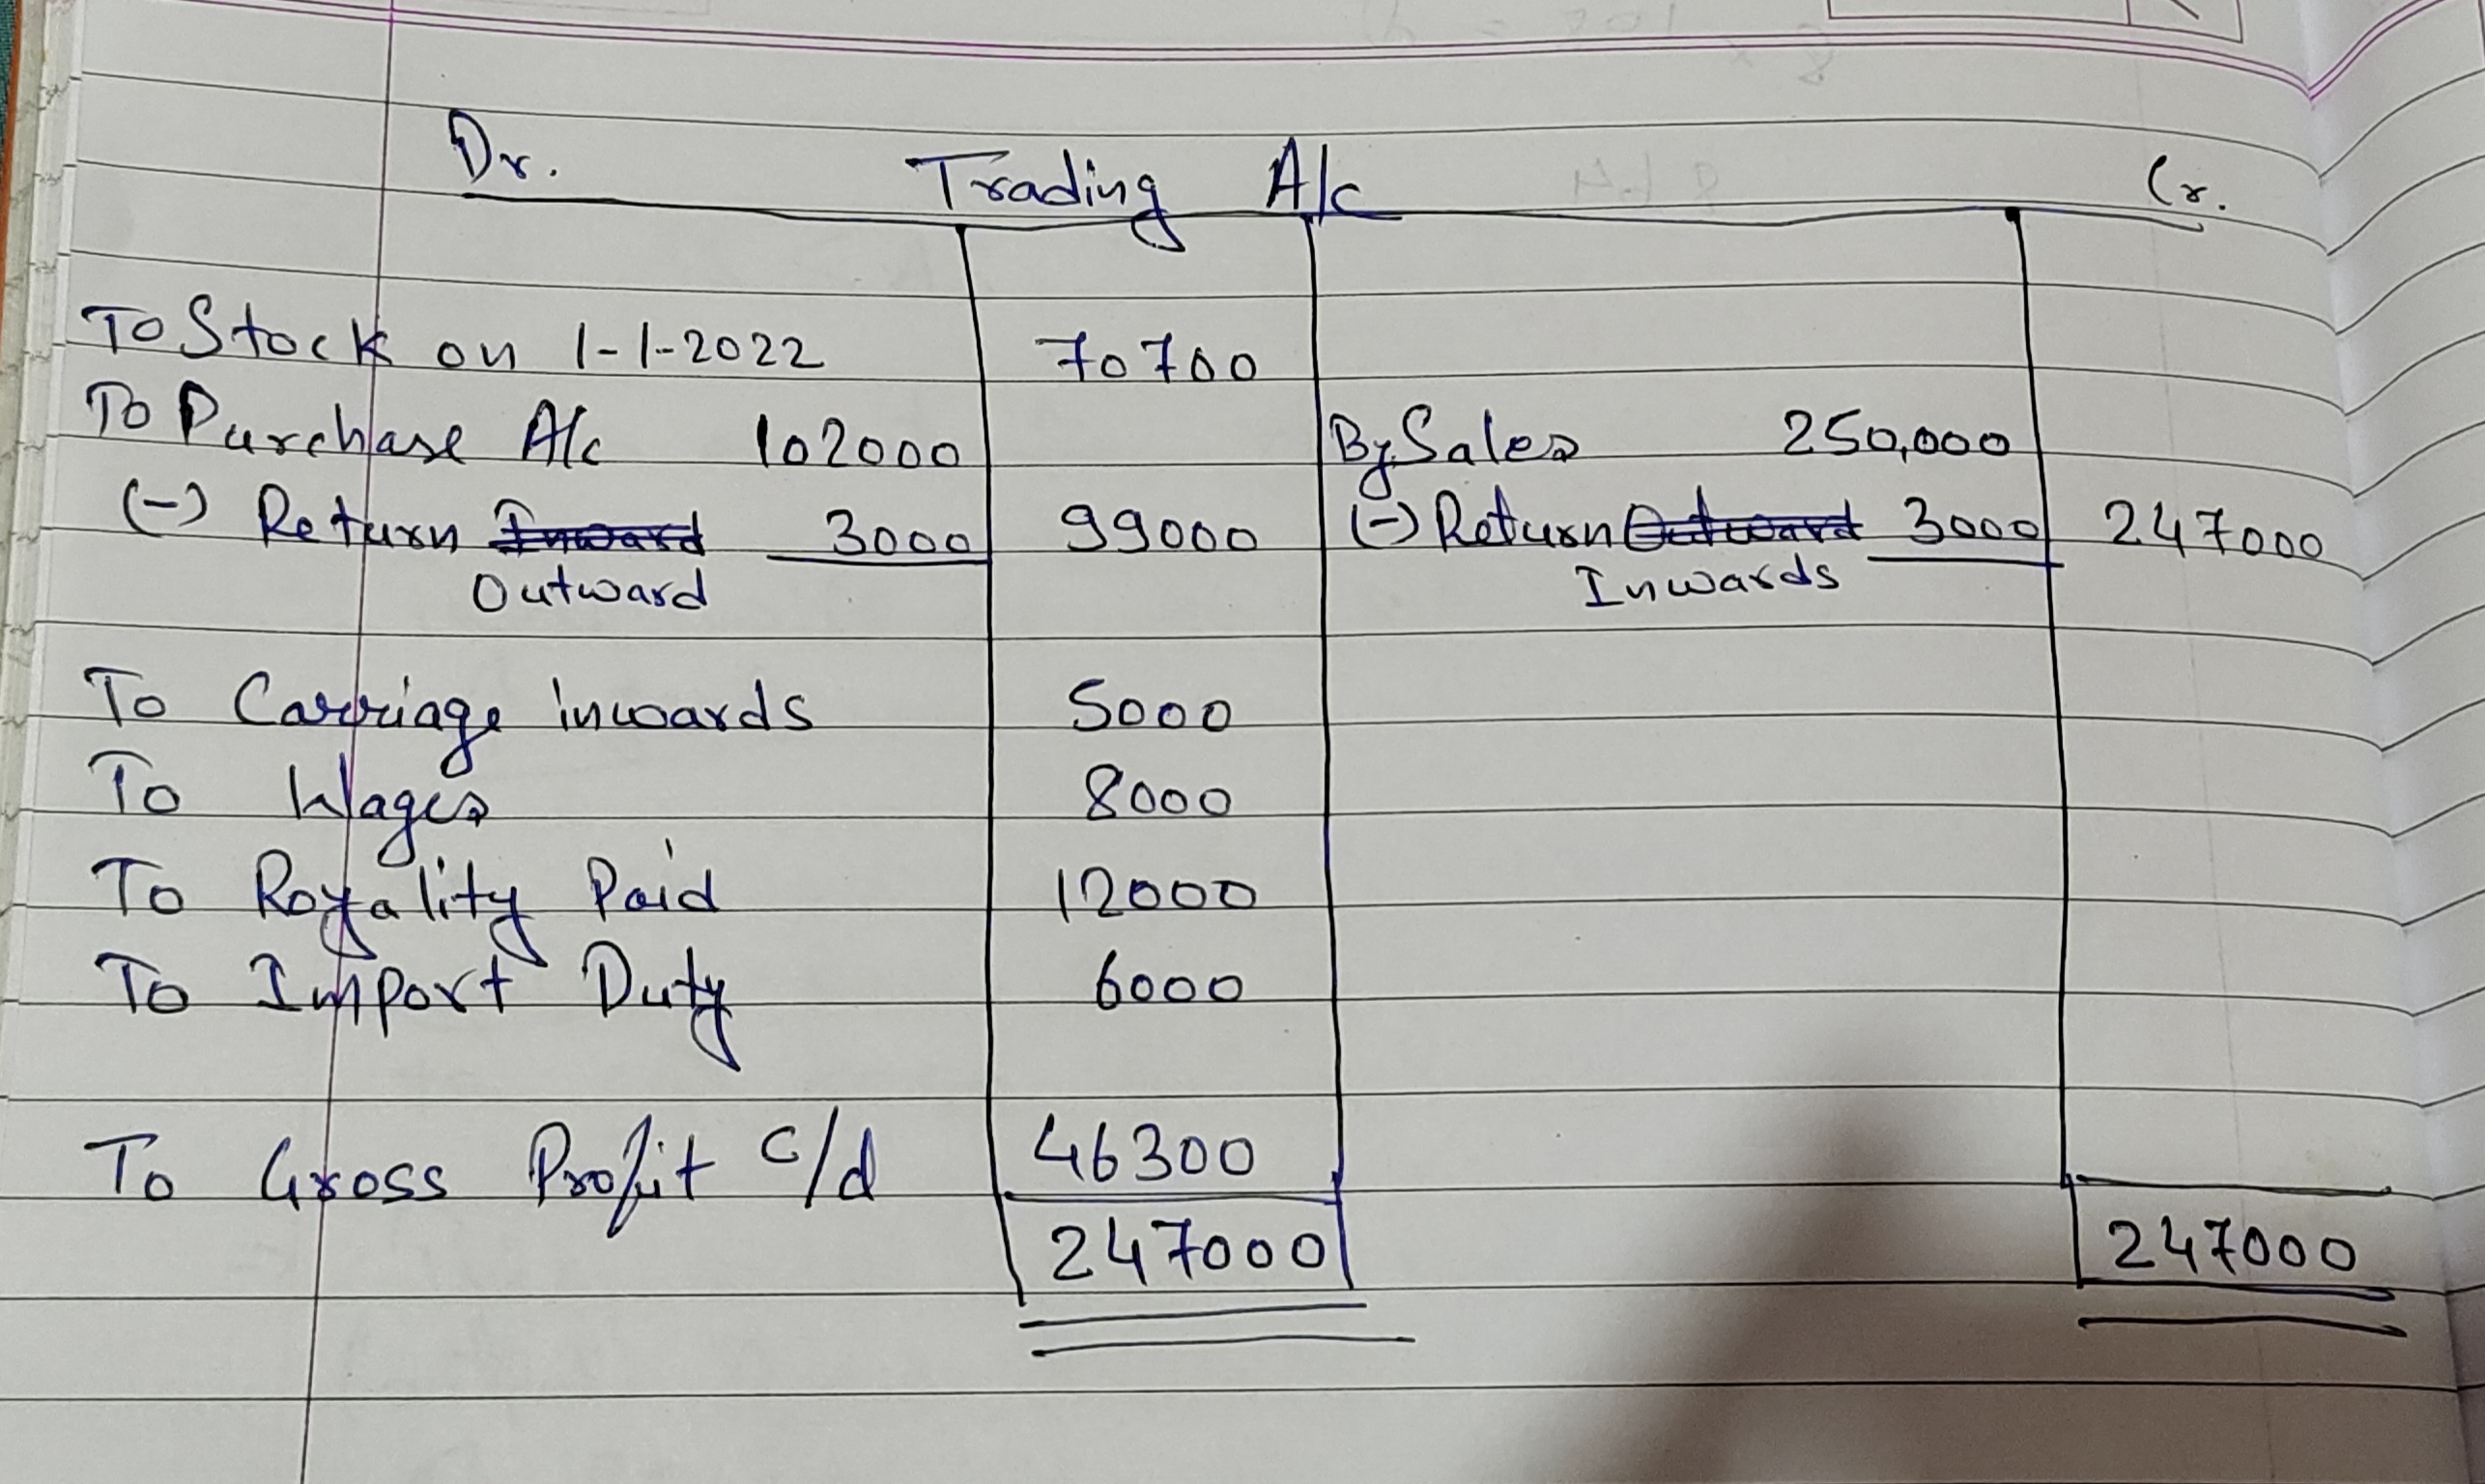 Dr. Trading A/c Cr.
To Stock on 1-1-2022 70700
To Purchase A/c 102000 By Sales 250,000
(-) Return Inward 3000 99000 (-) Return Outward 3000 247000
Outward Inwards
To Carriage inwards 5000
To Wages 8000
To Royality Paid 12000
To Import Duty 6000
To Gross Profit c/d 46300
247000 247000